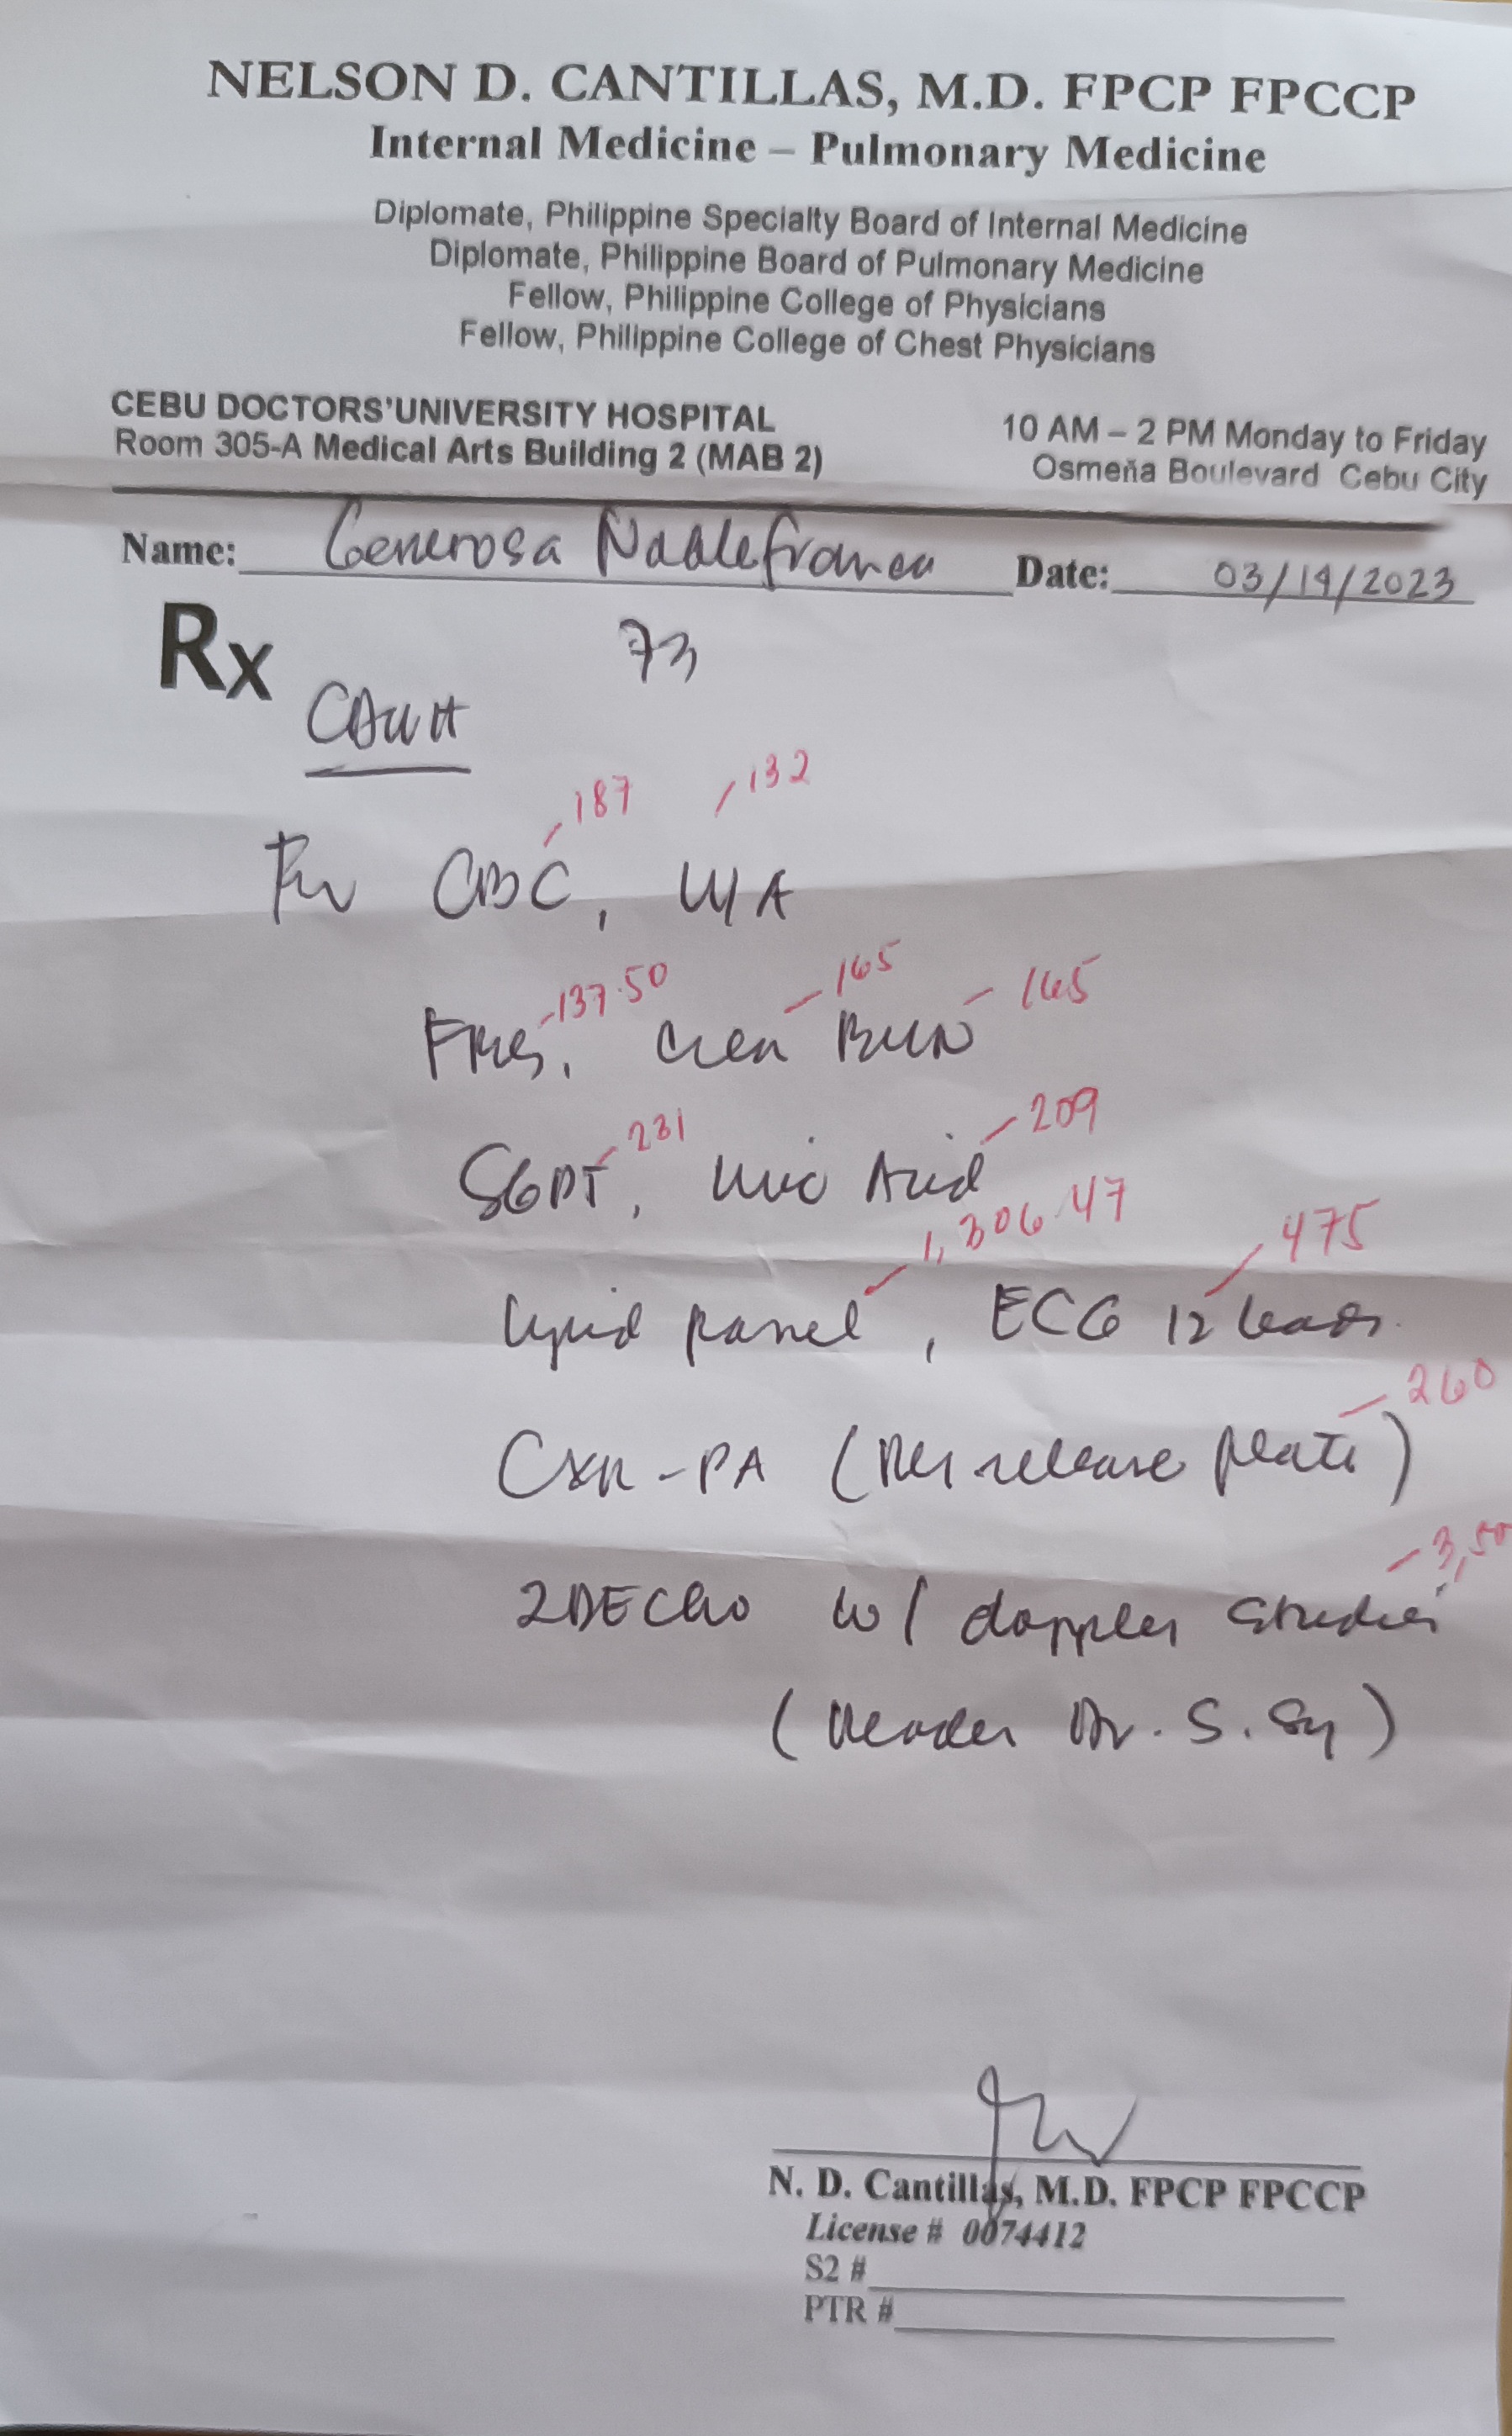 NELSON D. CANTILLAS, M.D. FPCP FPCCP
Internal Medicine – Pulmonary Medicine
Diplomate, Philippine Specialty Board of Internal Medicine
Diplomate, Philippine Board of Pulmonary Medicine
Fellow, Philippine College of Physicians
Fellow, Philippine College of Chest Physicians
CEBU DOCTORS'UNIVERSITY HOSPITAL 10 AM – 2 PM Monday to Friday
Room 305-A Medical Arts Building 2 (MAB 2) Osmeña Boulevard Cebu City
Name: Generosa Date: 03/14/2023
Rx 73
CDUH
187 132
CBC, U/A
137.50 165 165
FBS, Crea BUN
231 209
SGPT, Uric Acid
1,306.47 475
Lipid panel, ECG 12 leads.
260
CXR-PA ( release plate)
2DECho w/ doppler studies
(Reader Dr. S. Sy)
N. D. Cantillas, M.D. FPCP FPCCP
License # 0074412
S2 #
PTR #